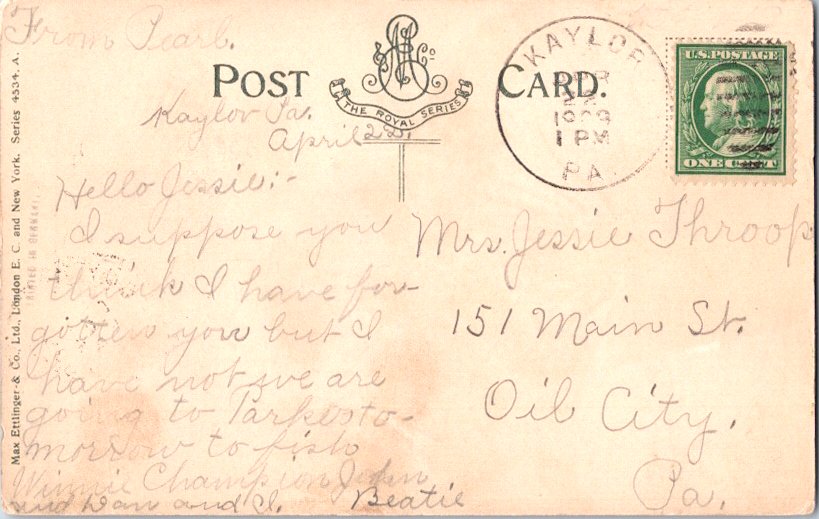 From Pearl.
POST CARD.
M E & Co.
THE ROYAL SERIES
KAYLOR
APR
22
1909
1 PM
PA.
U.S. POSTAGE
ONE CENT
Max Ettlinger & Co., Ltd., London E. C. and New York. Series 4534. A.
PRINTED IN GERMANY.
Kaylor Pa.
April 22,
Hello Jessie:-
I suppose you
think I have for-
gotten you but I
have not we are
going to Parkers to-
morrow to fish
Winnie Champion John
and Dan and I. Beatie
Mrs. Jessie Throop
151 Main St.
Oil City,
Pa.